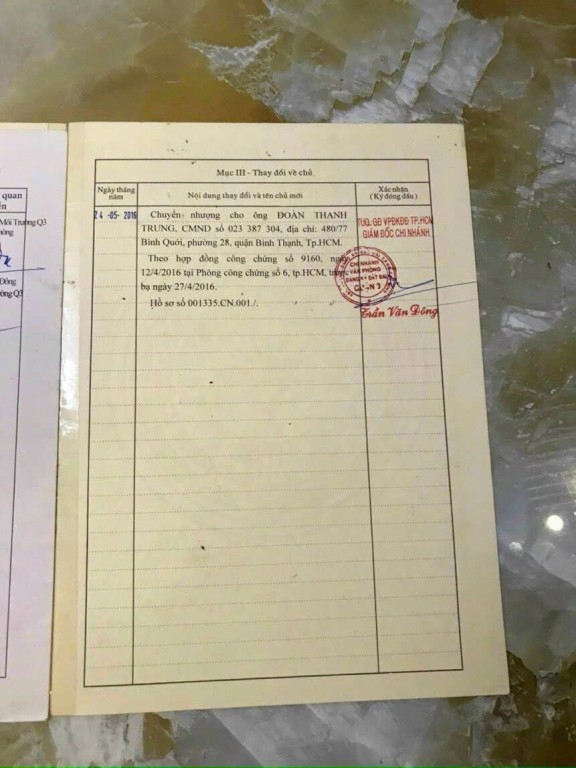 quan
Môi Trường Q3
Đông
ường Q3
Mục III - Thay đổi về chủ
Ngày tháng năm
Nội dung thay đổi và tên chủ mới
Xác nhận
(Ký đóng dấu)
24 -05- 2016
Chuyển nhượng cho ông ĐOÀN THANH
TRUNG, CMND số 023 387 304, địa chỉ: 480/77
Bình Quới, phường 28, quận Bình Thạnh, Tp.HCM.
Theo hợp đồng công chứng số 9160,
12/4/2016 tại Phòng công chứng số 6, tp.HCM,
bạ ngày 27/4/2016.
Hồ sơ số 001335.CN.001./.
TUQ. GĐ VPĐKĐĐ TP.HCM
GIÁM ĐỐC CHI NHÁNH
CHI NHÁNH
VĂN PHÒNG
ĐĂNG KÝ ĐẤT ĐAI
QUẬN 3
Trần Văn Đông